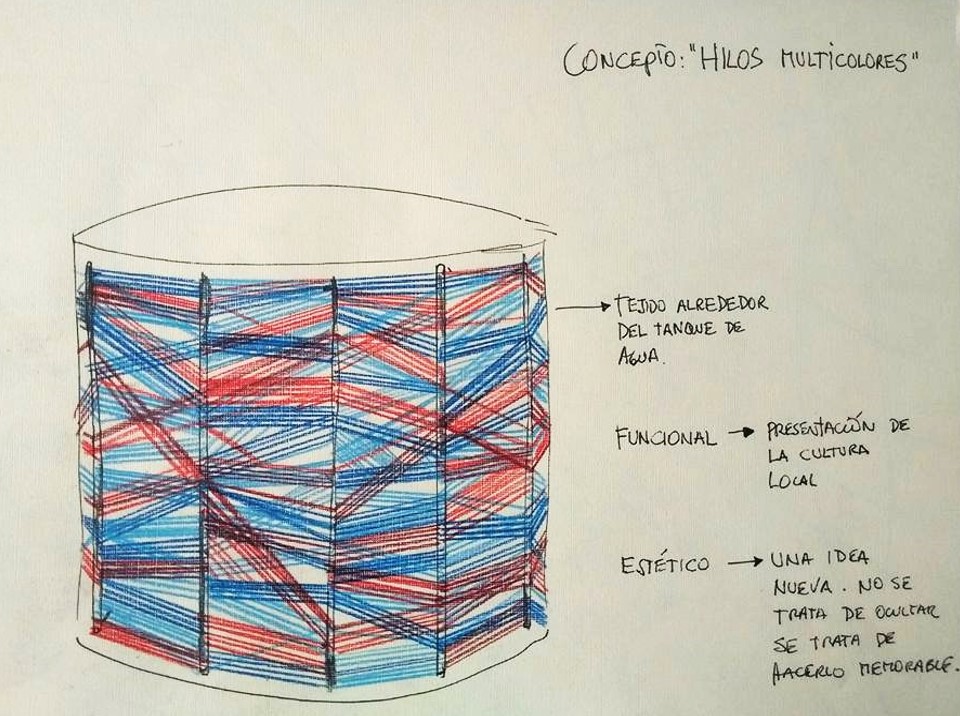 CONCEPTO: "HILOS MULTICOLORES"
TEJIDO ALREDEDOR
DEL TANQUE DE
AGUA.
FUNCIONAL → PRESENTACIÓN DE
LA CULTURA
LOCAL
ESTÉTICO → UNA IDEA
NUEVA. NO SE
TRATA DE OCULTAR
SE TRATA DE
HACERLO MEMORABLE.